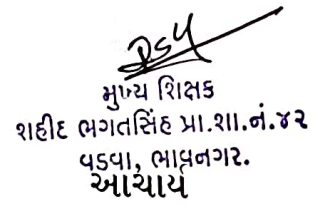 મુખ્ય શિક્ષક
શહીદ ભગતસિંહ પ્રા.શા.નં.૪૨
વડવા, ભાવનગર.
આચાર્ય